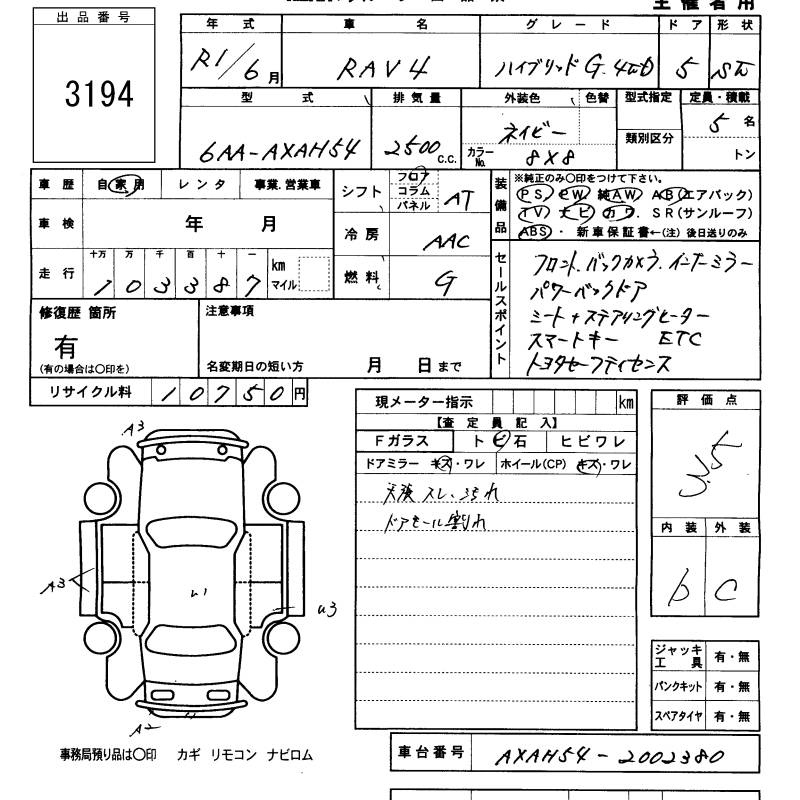 出品番号
3194
年式 車名 グレード ドア 形状
R1/6月 RAV4 ハイブリッドG.4WD 5 SW
型式 排気量 外装色 色替 型式指定 定員・積載
6AA-AXAH54 2500 c.c. ネイビー 類別区分 5名
カラーNo. 8X8 トン
車歴 自家用 レンタ 事業.営業車
シフト フロア コラム パネル AT
車検 年 月
冷房 AAC
走行 十万 万 千 百 十 一 km マイル
103387
燃料 G
装備品 ※純正のみ〇印をつけて下さい。
PS PW 純AW AB(エアバック)
TV ナビ カワ. SR(サンルーフ)
ABS・ 新車保証書←(注)後日送りのみ
セールスポイント
フロント.バックカメラ.インナーミラー
パワーバックドア
シート+ステアリングヒーター
スマートキー ETC
トヨタセーフティセンス
修復歴 箇所
有
(有の場合は〇印を)
注意事項
名変期日の短い方 月 日まで
リサイクル料 10750円
現メーター指示 km
【査定員記入】
Fガラス トビ石 ヒビワレ
ドアミラー キズ・ワレ ホイール(CP) キズ・ワレ
天張 スレ.ヨゴれ
ドアモール割れ
評価点
3.5
内装 外装
b C
ジャッキ工具 有・無
パンクキット 有・無
スペアタイヤ 有・無
A3
A3
u1
u3
A2
事務局預り品は〇印 カギ リモコン ナビロム
車台番号 AXAH54-2002380